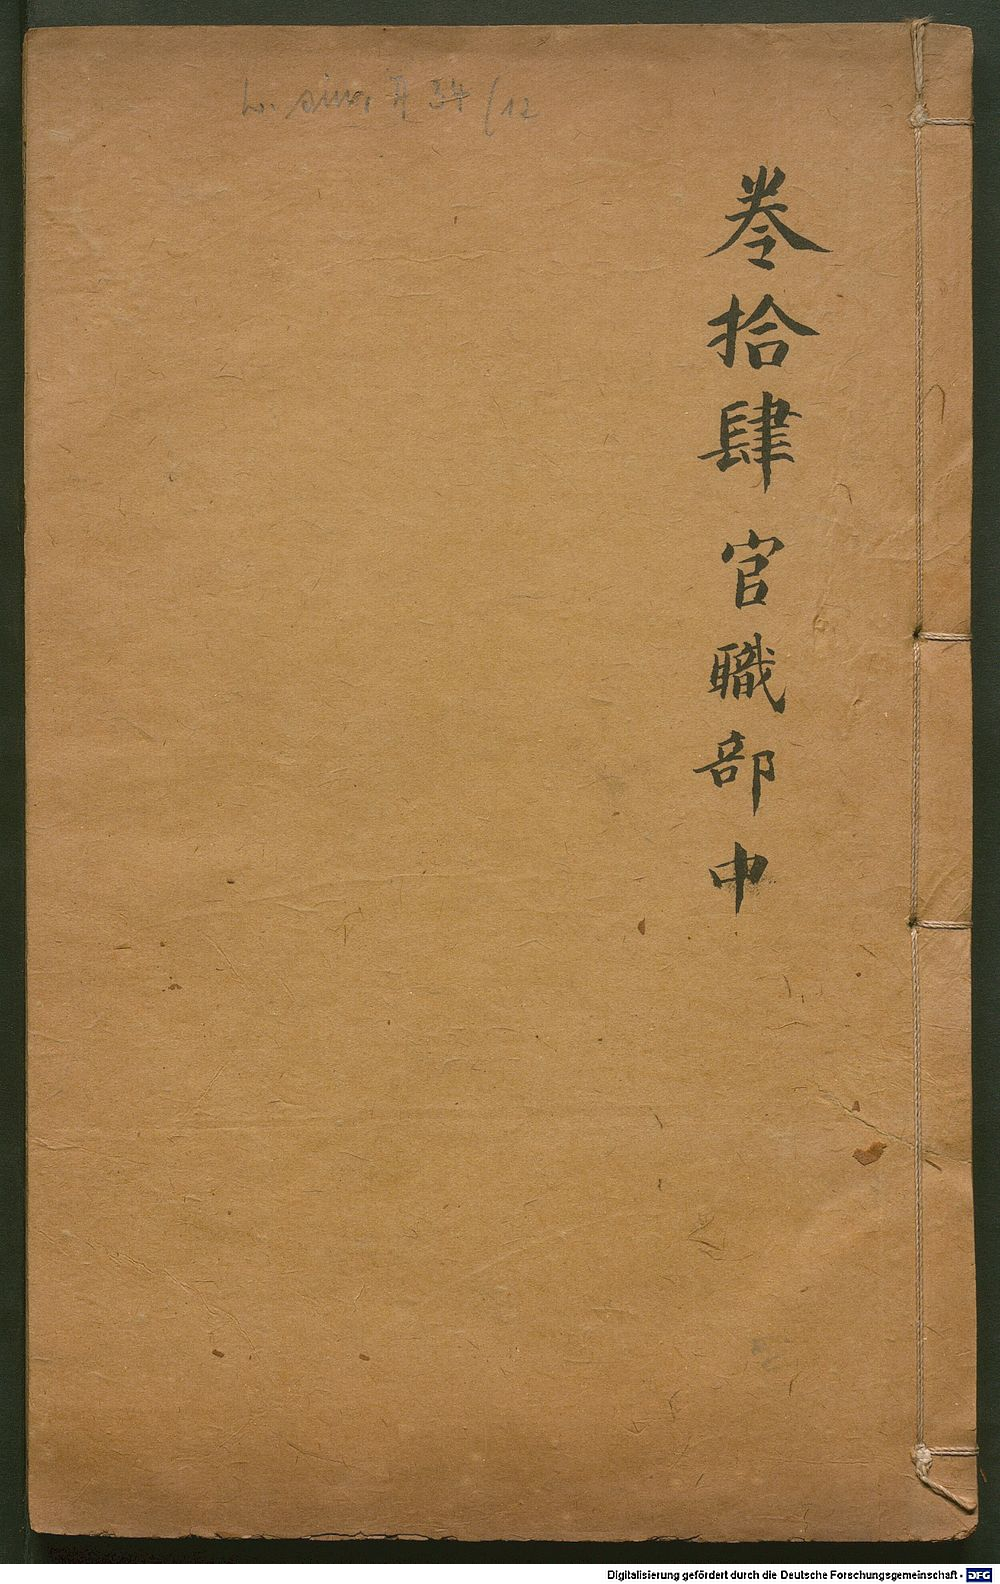 L. sin. A 34/12
卷拾肆 官職部中
Digitalisierung gefördert durch die Deutsche Forschungsgemeinschaft - DFG